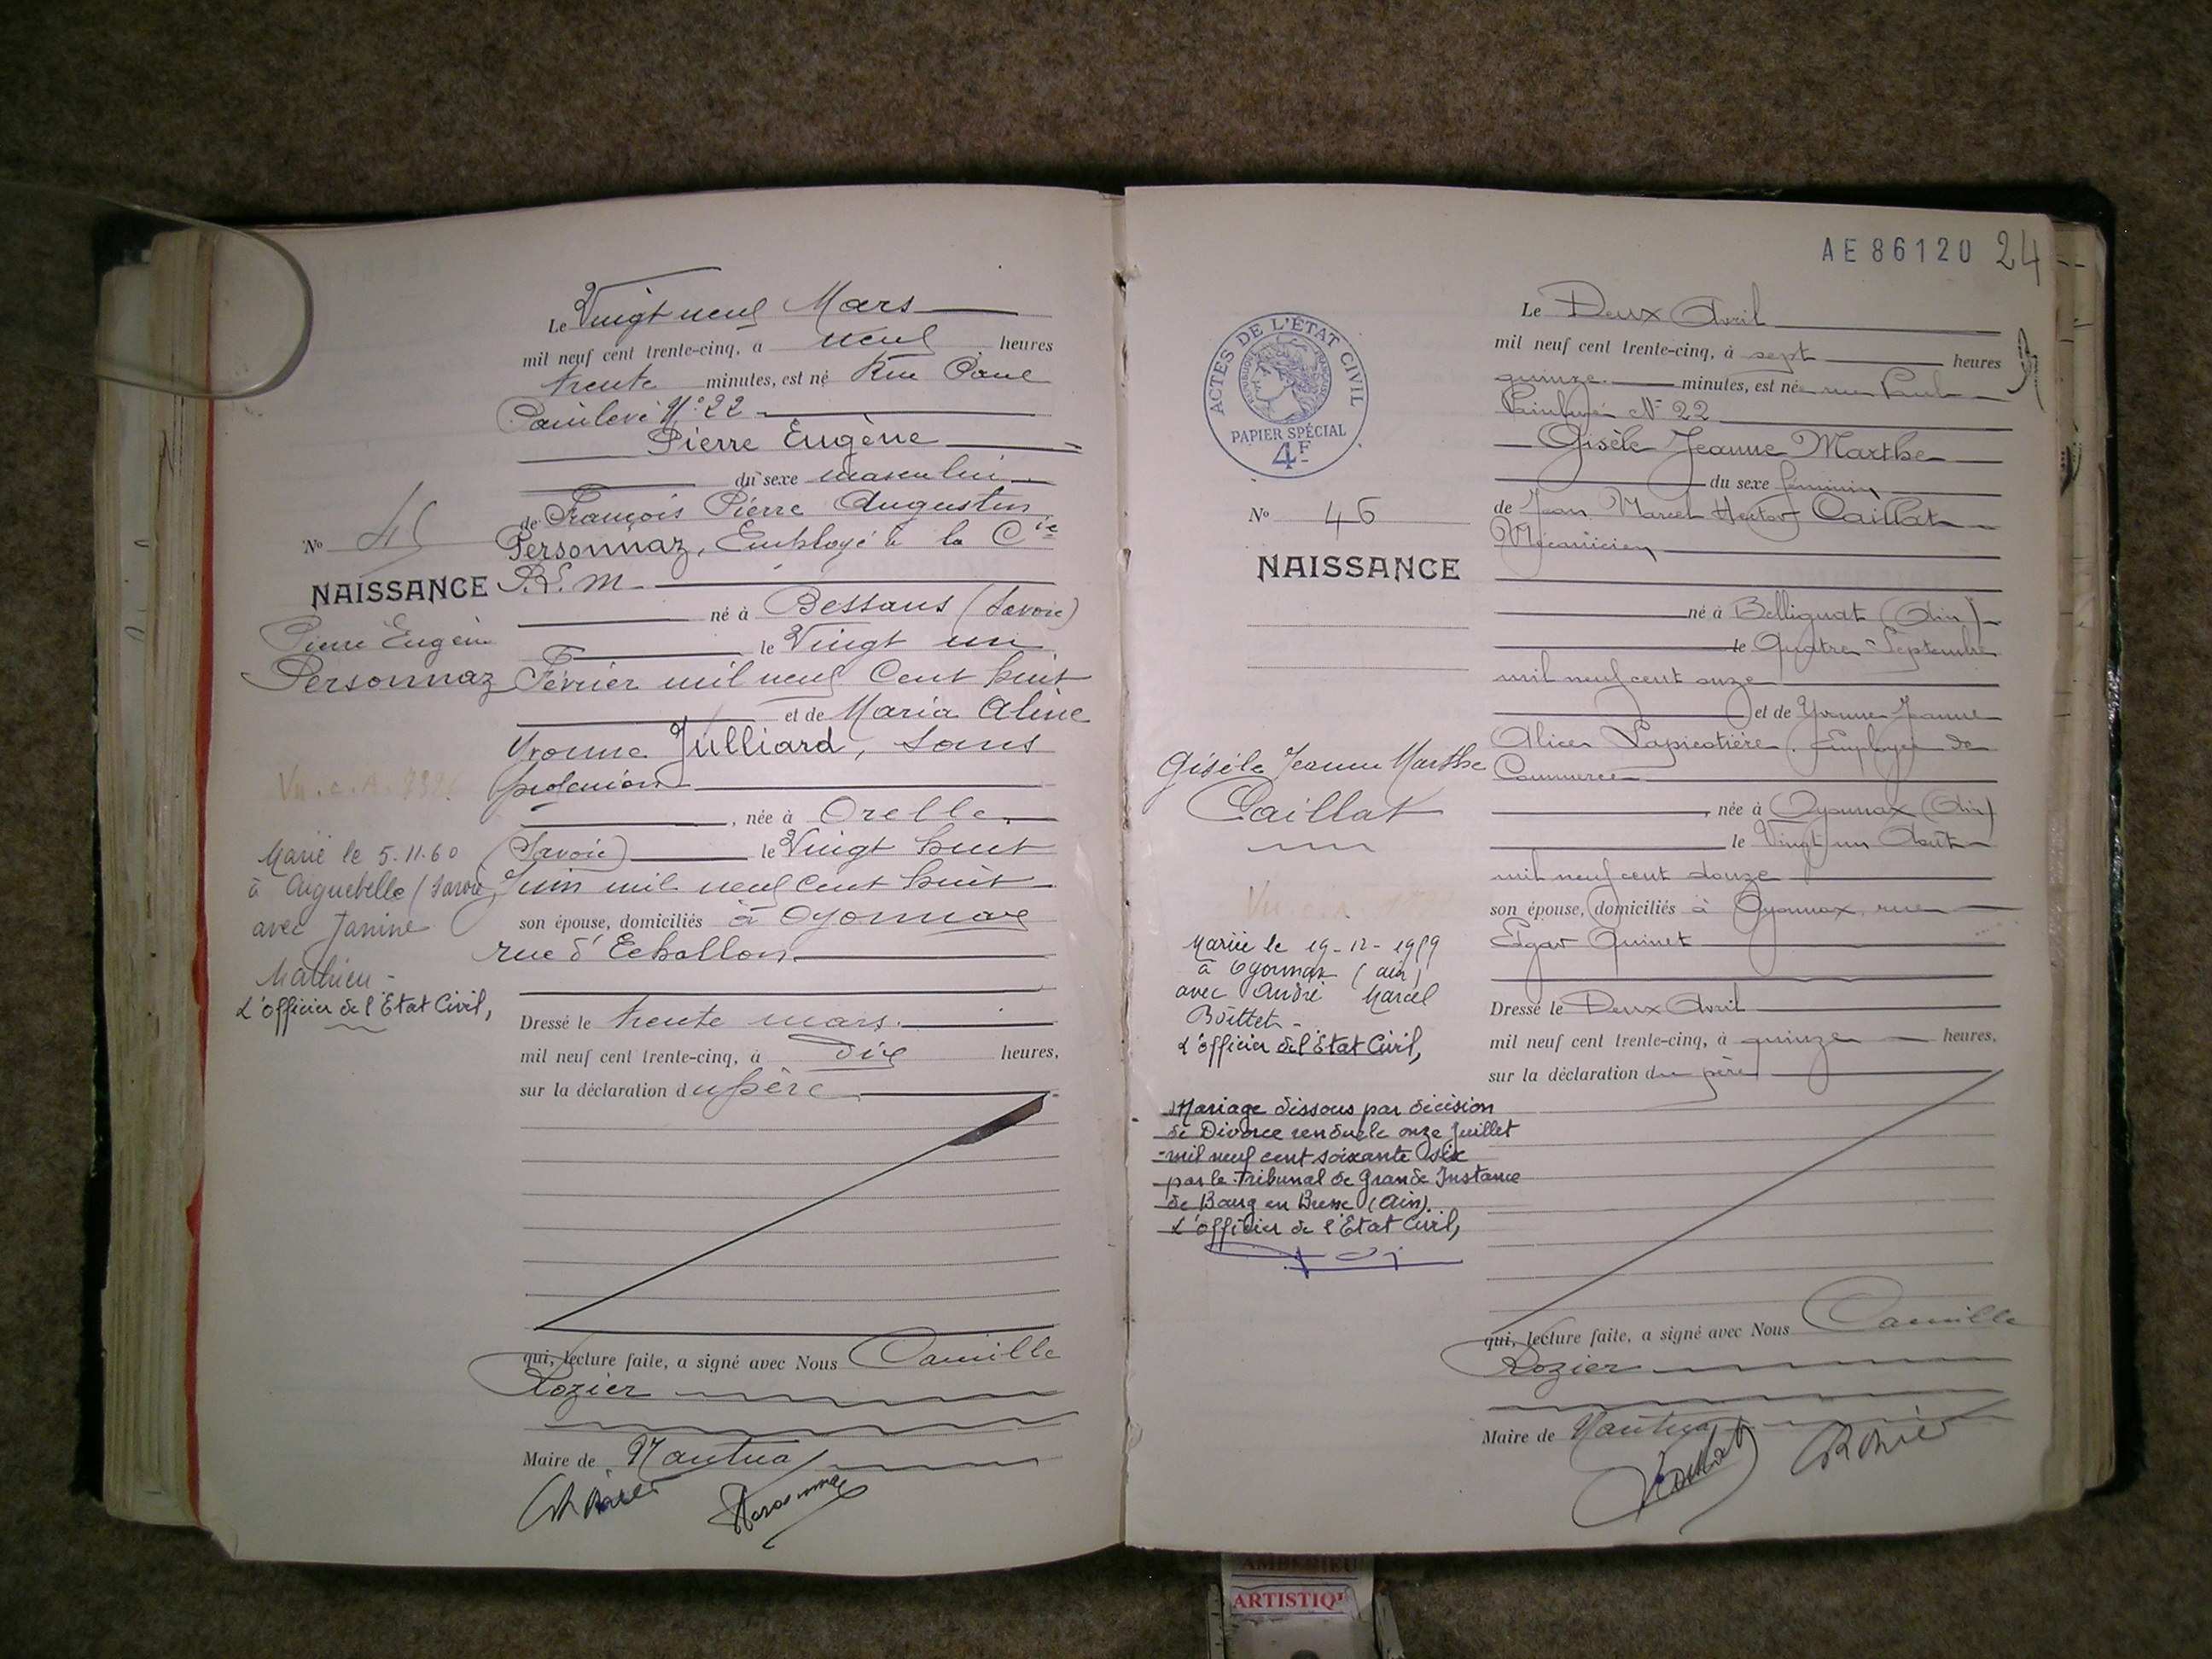 Le Vingt neuf Mars
mil neuf cent trente-cinq, à neuf heures
trente minutes, est né Rue Paul
Painlevé N° 22
Pierre Eugène
du sexe masculin
de François Pierre Augustin
Personnaz, Employé à la Cie
P.L.M.
né à Bessans (Savoie)
le Vingt un
Février mil neuf Cent huit
et de Maria Aline
Yvonne Julliard, sans
profession
, née à Orelle
(Savoie) le Vingt huit
Juin mil neuf cent huit
son épouse, domiciliés à Oyonnax
rue d'Echallon
Dressé le trente mars
mil neuf cent trente-cinq, à dix heures,
sur la déclaration du père
qui, lecture faite, a signé avec Nous Camille
Rozier
Maire de Nantua
Personnaz
N° 45
NAISSANCE
Pierre Eugène
Personnaz
Marié le 5.11.60
à Aiguebelle (Savoie)
avec Janine
Mathieu -
L'Officier de l'Etat Civil,
AE 86120 24
ACTES DE L'ÉTAT CIVIL
RÉPUBLIQUE FRANÇAISE
PAPIER SPÉCIAL
4F
N° 46
NAISSANCE
Gisèle Jeanne Marthe
Caillat
Mariée le 19-12-1959
à Oyonnax (ain)
avec André Marcel
L'officier de l'Etat Civil,
Mariage dissous par décision
de Divorce rendue le onze Juillet
mil neuf cent soixante six
par le Tribunal de Grande Instance
de Bourg en Bresse (Ain).
L'officier de l'Etat Civil,
Le Deux Avril
mil neuf cent trente-cinq, à sept heures
quinze minutes, est née rue Paul
Painlevé N° 22
Gisèle Jeanne Marthe
du sexe féminin
de Jean Marcel Hector Caillat
Mécanicien
né à Bellignat (Ain)
le Quatre Septembre
mil neuf cent onze
et de Yvonne Jeanne
Alice Lapicotière, Employée de
Commerce
, née à Oyonnax (Ain)
le Vingt un Août
mil neuf cent douze
son épouse, domiciliés à Oyonnax, rue
Edgar Quinet
Dressé le Deux Avril
mil neuf cent trente-cinq, à quinze heures,
sur la déclaration du père
qui, lecture faite, a signé avec Nous Camille
Rozier
Maire de Nantua
Caillat
AMBERIEU
ARTISTIQ